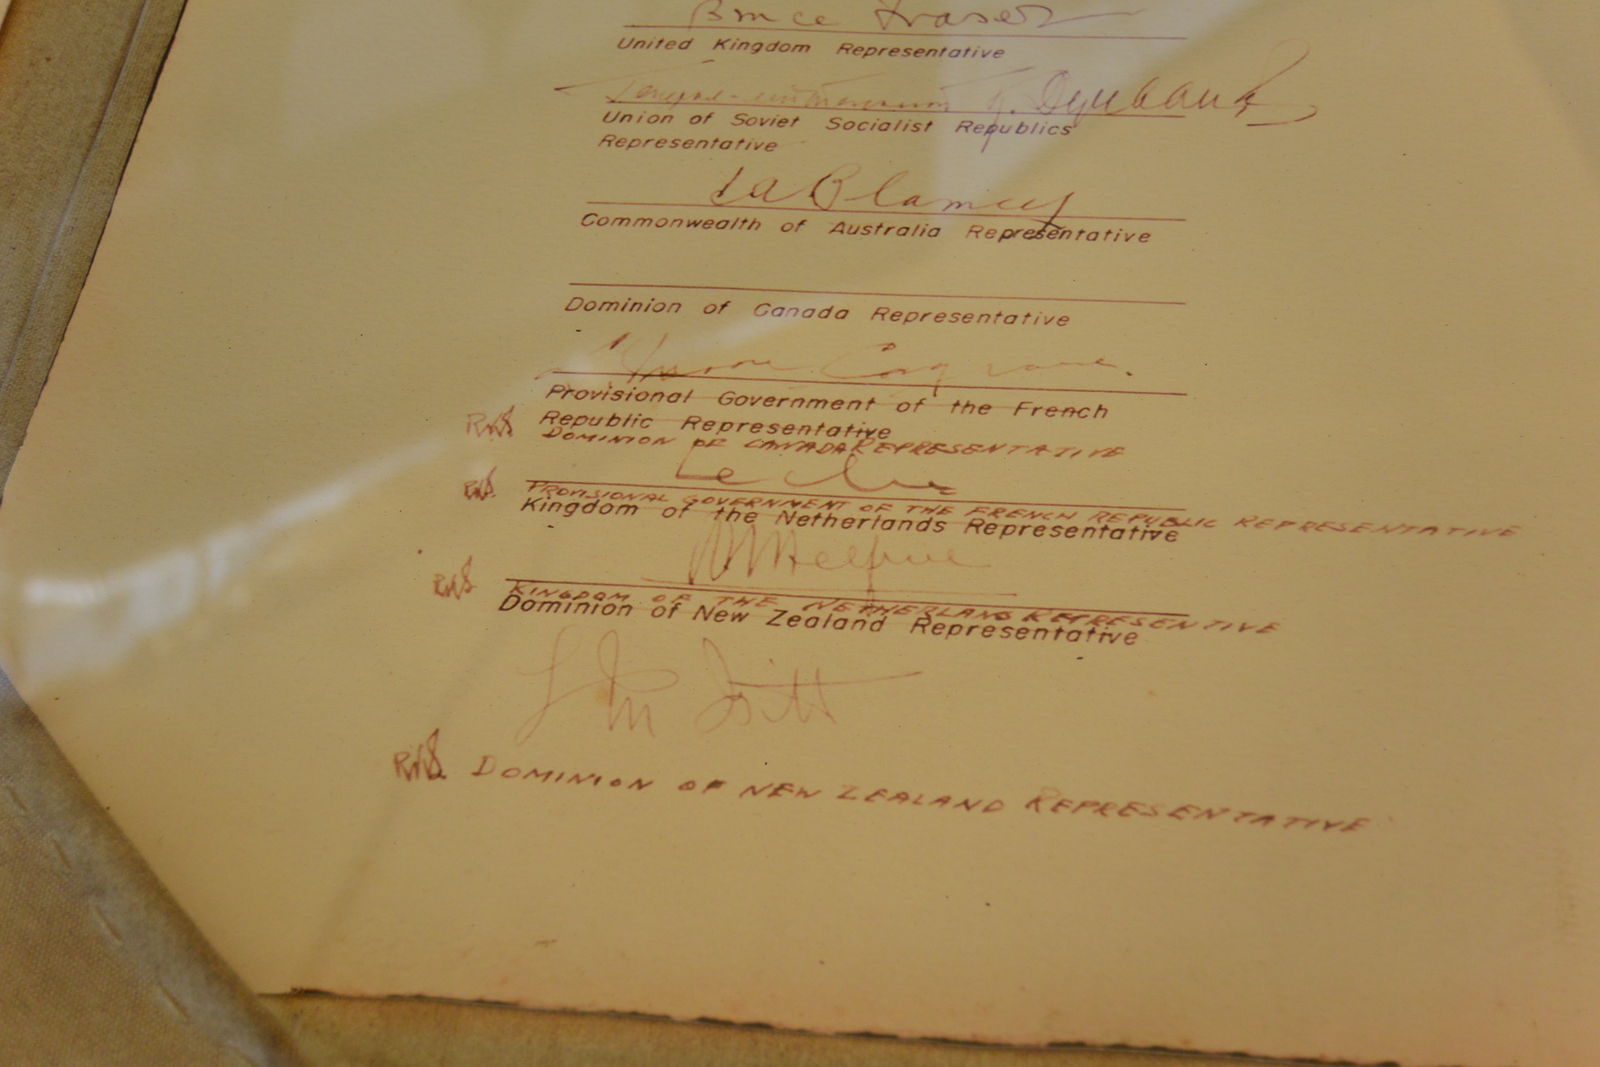 Bruce Fraser
United Kingdom Representative
Генерал-лейтенант К. Деревянко
Union of Soviet Socialist Republics
Representative
T A Blamey
Commonwealth of Australia Representative
Dominion of Canada Representative
Moore Cosgrave.
Provisional Government of the French
Republic Representative
RKS DOMINION OF CANADA REPRESENTATIVE
Le Clerc
RKS PROVISIONAL GOVERNMENT OF THE FRENCH REPUBLIC REPRESENTATIVE
Kingdom of the Netherlands Representative
Helfrich
RKS KINGDOM OF THE NETHERLANDS REPRESENTIVE
Dominion of New Zealand Representative
L M Isitt
RKS DOMINION OF NEW ZEALAND REPRESENTATIVE